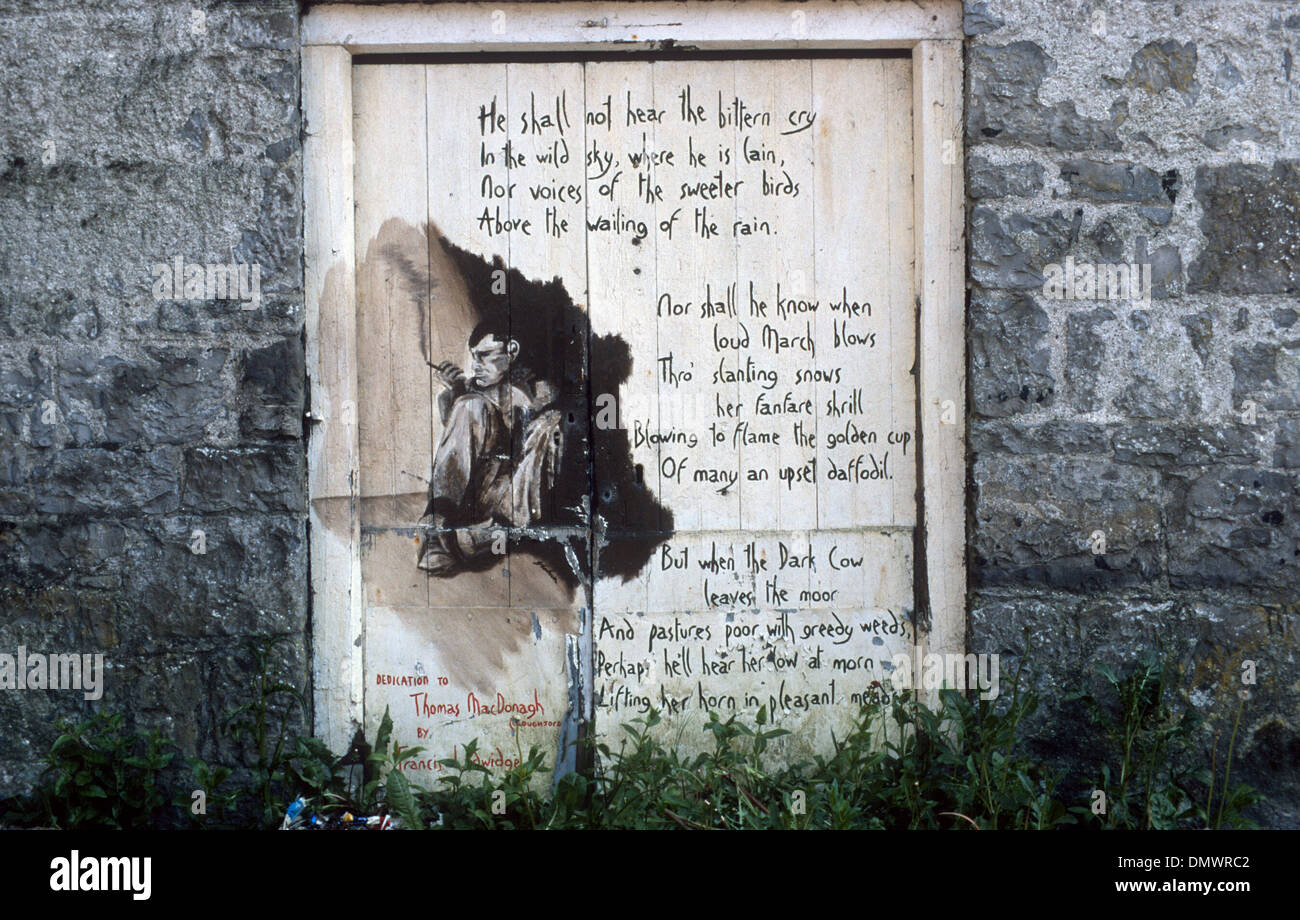 He shall not hear the bittern cry
In the wild sky, where he is lain,
Nor voices of the sweeter birds
Above the wailing of the rain.
Nor shall he know when
loud March blows
Thro' slanting snows
her fanfare shrill
Blowing to flame the golden cup
Of many an upset daffodil.
But when the Dark Cow
leaves the moor
And pastures poor with greedy weeds,
Perhaps he'll hear her low at morn
Lifting her horn in pleasant
DEDICATION TO
Thomas MacDonagh
(CLOUGHJORD
BY.
Francis
alamy
www.alamy.com
DMWRC2